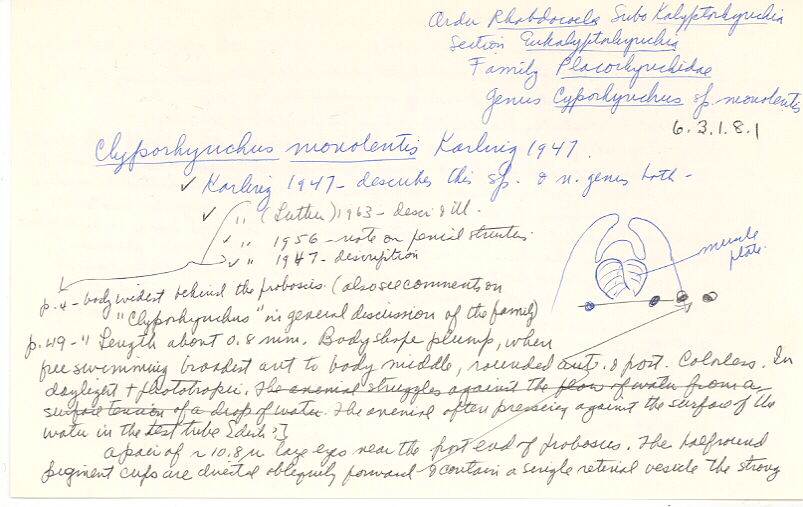 Order Rhabdocoela Subo Kalyptorhynchia
Section Eukalyptorhynchia
Family Placorhynchidae
Genus Clyporhynchus sp. monolentis
6.3.1.8.1
Clyporhynchus monolentis Karling 1947.
✓ Karling 1947 - describes this sp. & n. genus both -
✓ " (Luther) 1963 - descr & ill.
✓ " 1956 - note on penial structures
✓ " 1947 - description
muscle plate.
p.4 - body widest behind the proboscis (also see comments on
"Clyporhynchus" in general discussion of the family)
p.49 - " Length about 0.8 mm. Body shape plump, when
free swimming broadest ant to body middle, rounded ant. & post. Colorless. In
daylight + phototropic. The animal struggles against the flow of water from a
surface tension of a drop of water. The animal often pressing against the surface of the
water in the test tube [dish?]
a pair of ~10.8 µ large eyes near the post end of proboscis. The halfround
pigment cups are directed obliquely forward & contain a single retinal vesicle the strong